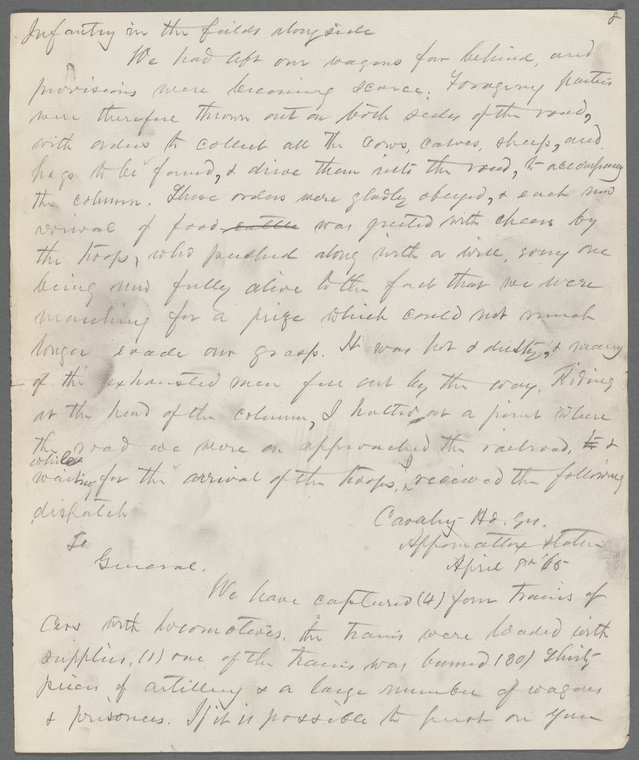 8
Infantry in the fields alongside
We had left our wagons far behind, and
provisions were becoming scarce. Foraging parties
were therefore thrown out on both sides of the road,
with orders to collect all the cows, calves, sheep, and
hogs to be found, & drive them into the road, to accompany
the column. These orders were gladly obeyed, & each new
arrival of food cattle was greeted with cheers by
the troops, who pushed along with a will, every one
being now fully alive to the fact that we were
marching for a prize which could not much
longer evade our grasp. It was hot & dusty, & many
of the exhausted men fell out by the way. Riding
at the head of the column, I halted at a point where
the road we were on approached the railroad, &
while
waiting for the arrival of the troops, I received the following
dispatch
Cavalry Hd. Qrs.
Appomattox Station
April 8th '65
To
General.
We have captured (4) four trains of
Cars with locomotives. The trains were loaded with
supplies, (1) one of the trains was burned (30) thirty
pieces of artillery & a large number of wagons
& prisoners. If it is possible to push on your